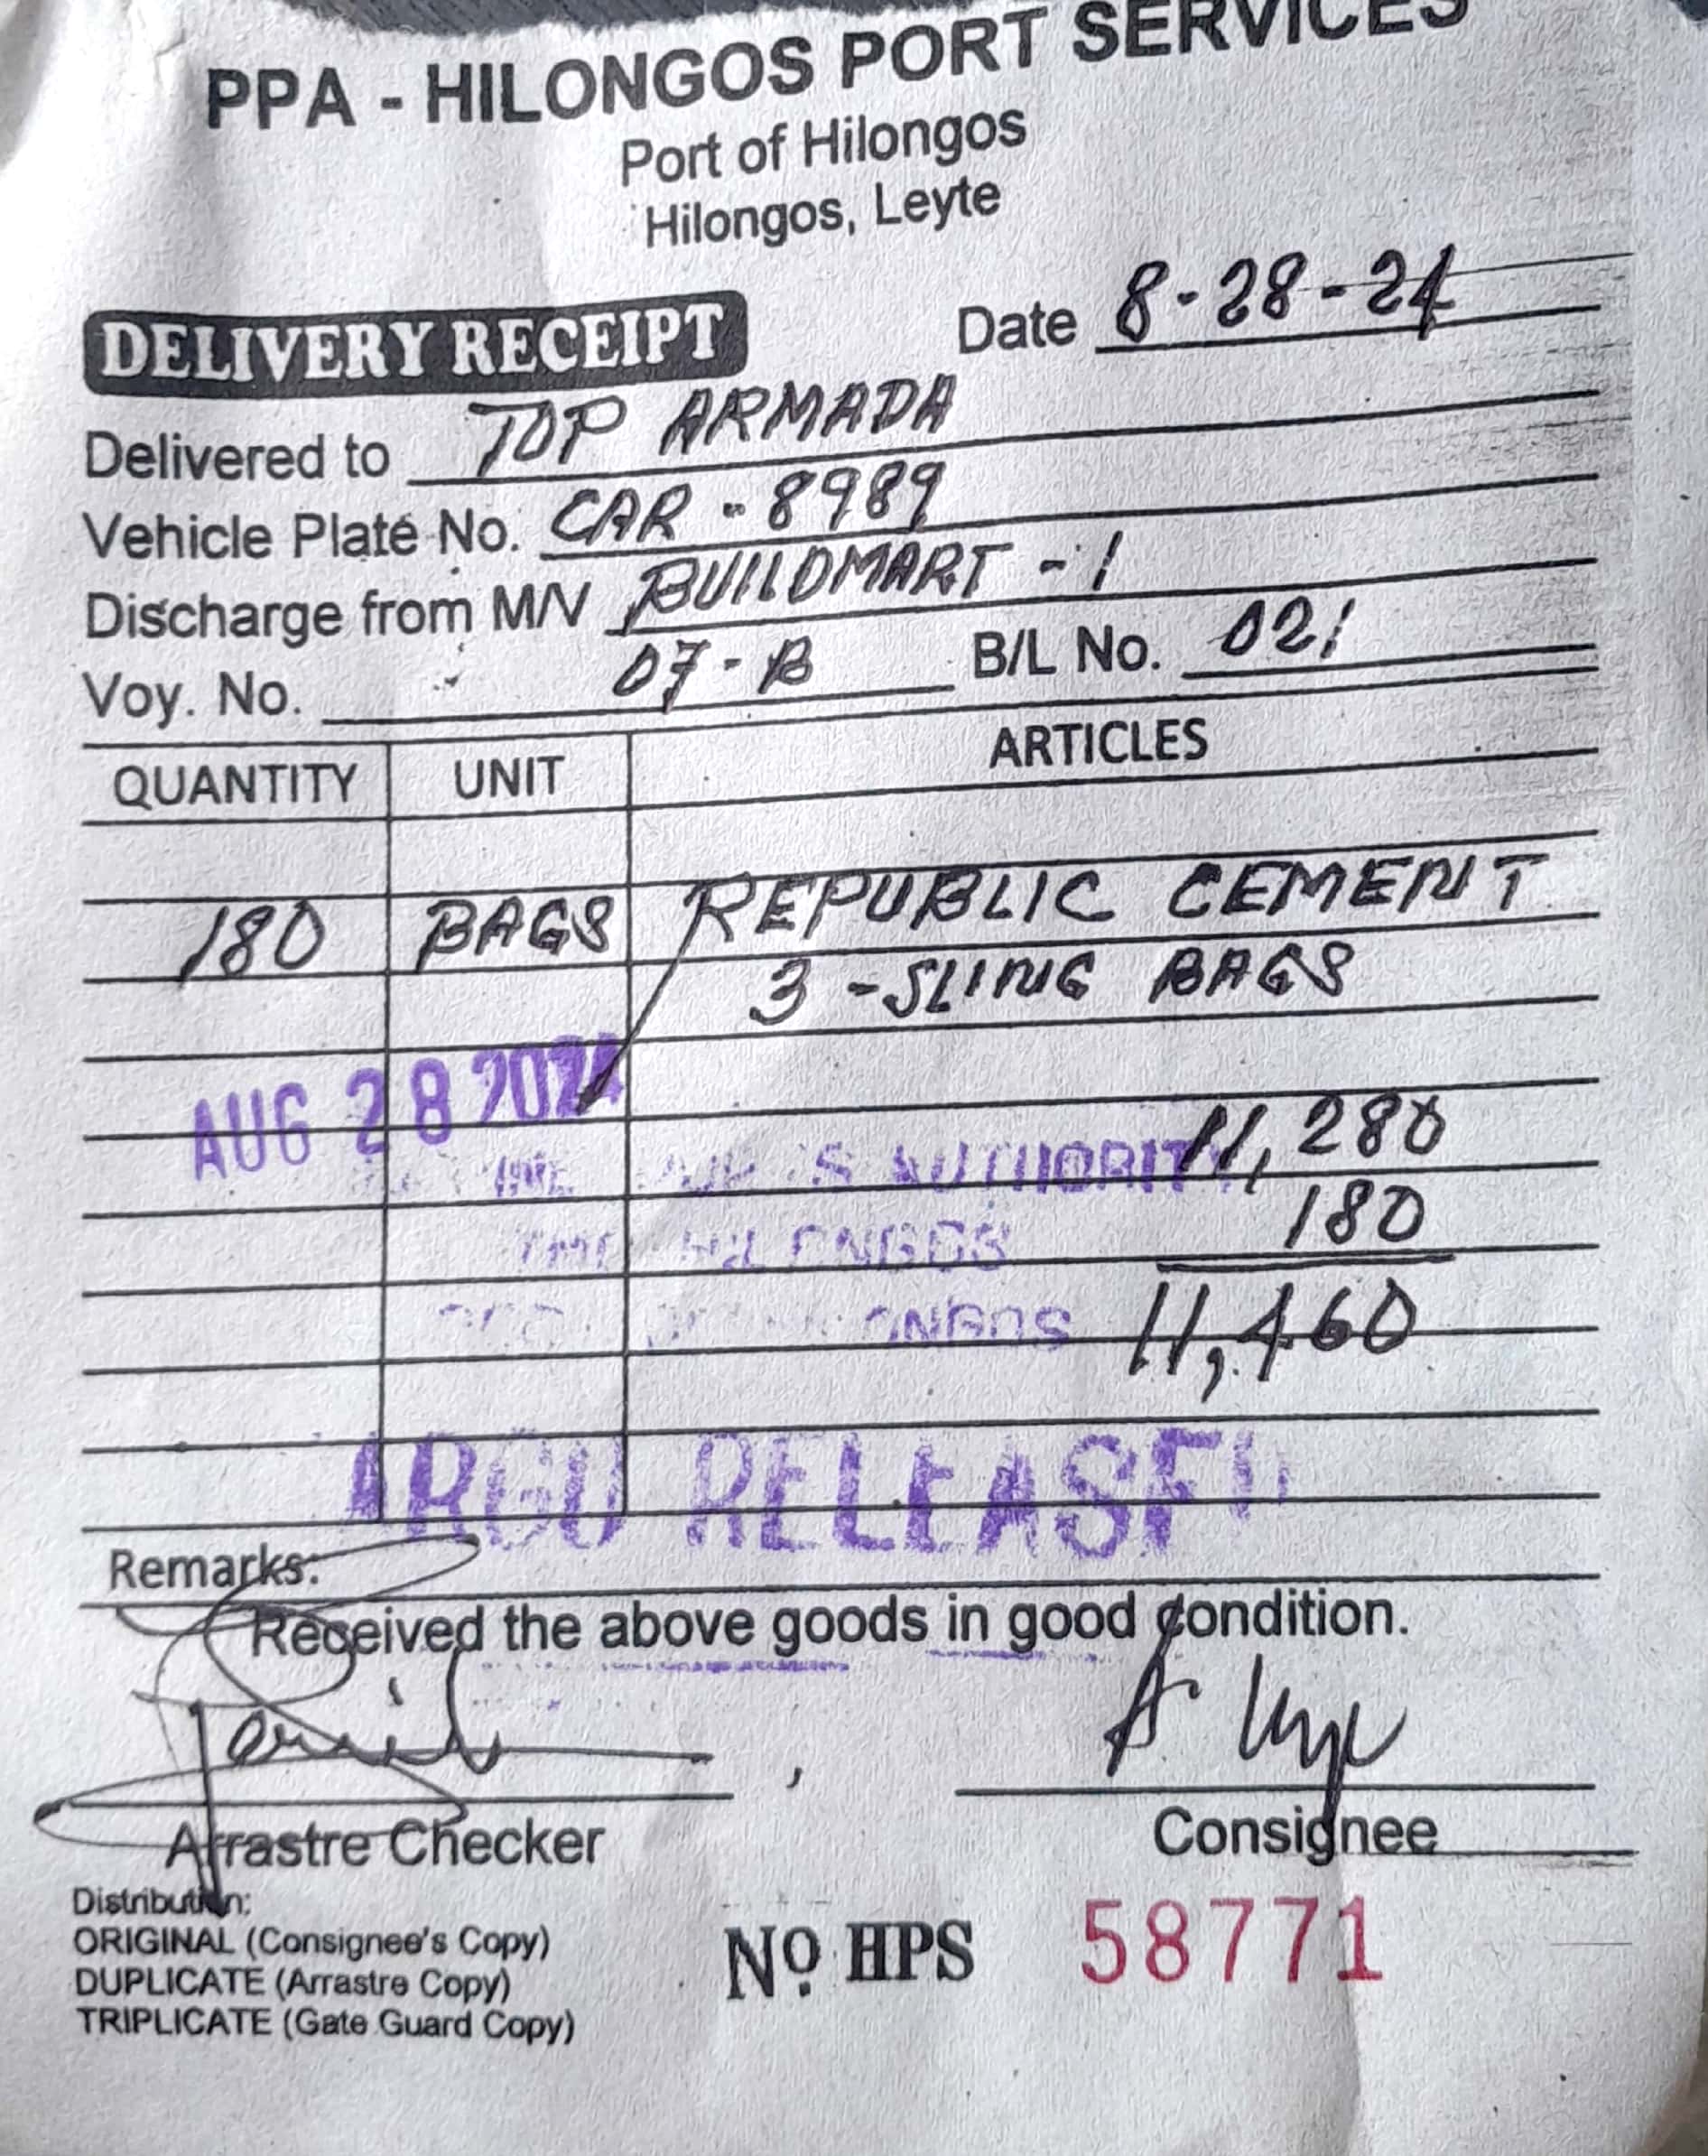 PPA - HILONGOS PORT SERVICES
Port of Hilongos
Hilongos, Leyte
DELIVERY RECEIPT Date 8-28-24
Delivered to TOP ARMADA
Vehicle Plate No. CAR - 8989
Discharge from M/V BUILDMART - 1
Voy. No. 07-B B/L No. 021
QUANTITY UNIT ARTICLES
180 BAGS REPUBLIC CEMENT
3 - SLING BAGS
AUG 28 2024
11,280
AUTHORITY
180
HILONGOS
11,460
RELEASED
Remarks:
Received the above goods in good condition.
Arrastre Checker Consignee
Distribution:
ORIGINAL (Consignee's Copy)
DUPLICATE (Arrastre Copy)
TRIPLICATE (Gate Guard Copy)
No HPS 58771